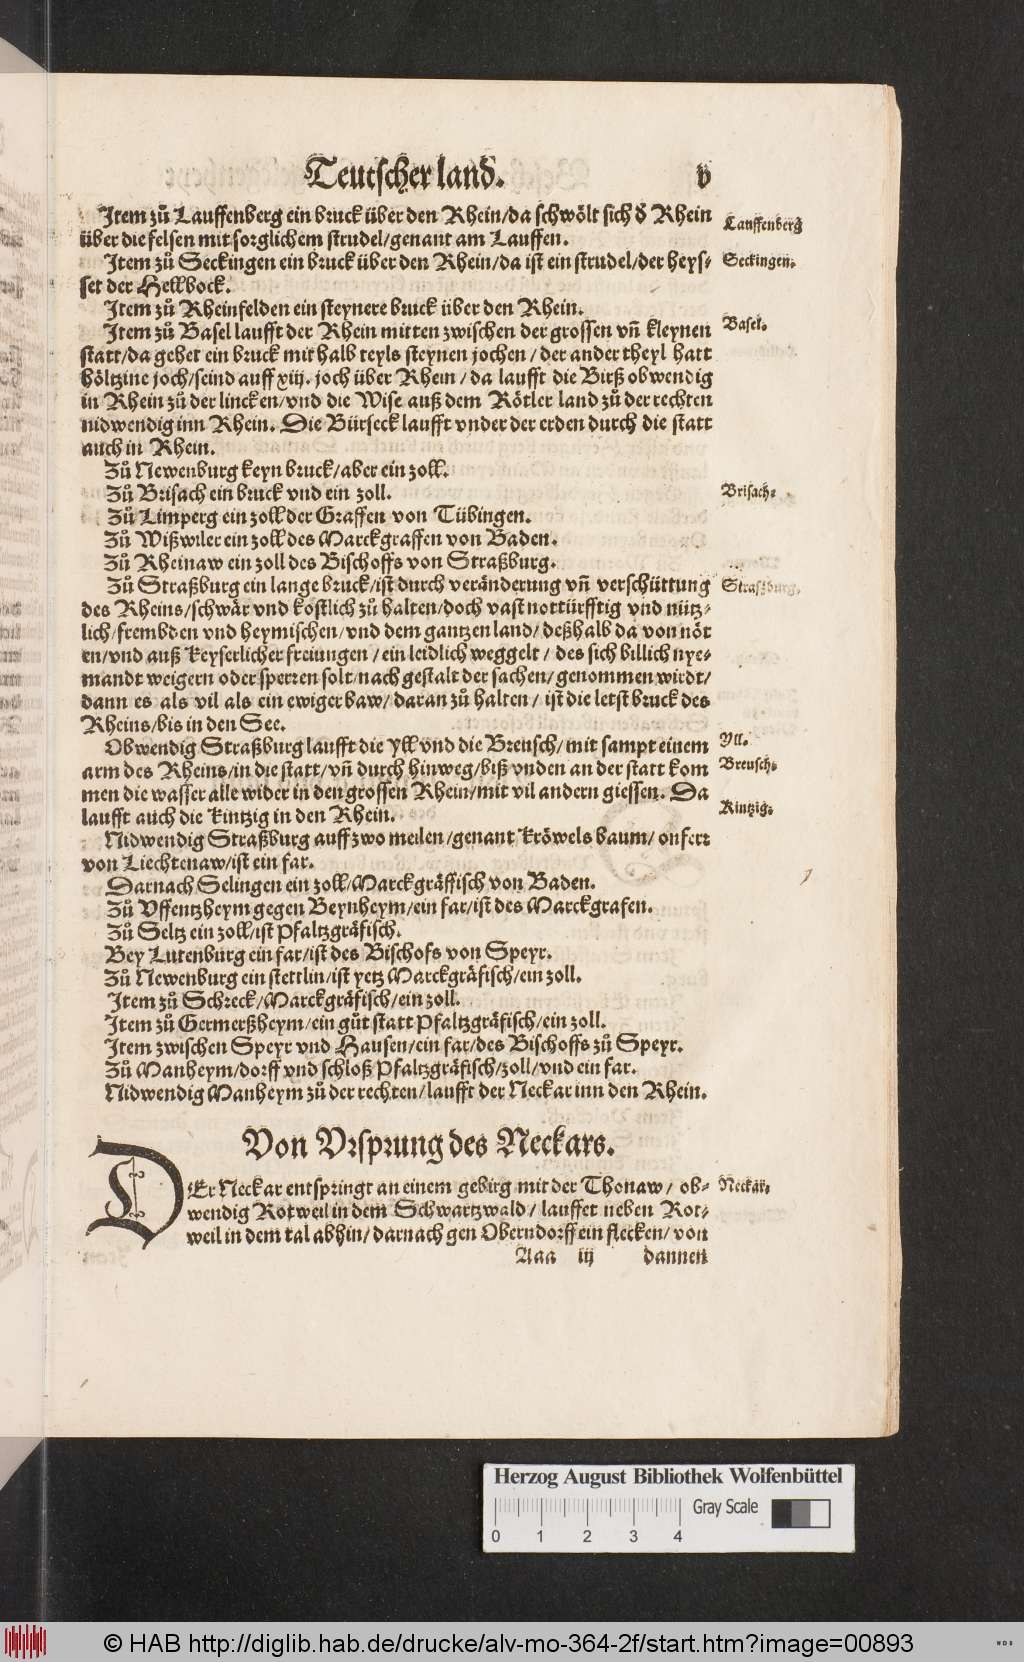 Teutscher land. v
Item zů Lauffenberg ein bruck über den Rhein/da schwölt sich d̄ Rhein
über die felsen mit sorglichem strudel/genant am Lauffen.
Lauffenberg
Item zů Seckingen ein bruck über den Rhein/da ist ein strudel/der heys-
set der Hellbock.
Seckingen.
Item zů Rheinfelden ein steynere bruck über den Rhein.
Item zů Basel laufft der Rhein mitten zwischen der grossen vn̄ kleynen
statt/da gehet ein bruck mit halb teyls steynen jochen/der ander theyl hatt
höltzine joch/seind auff xiij. joch über Rhein/da laufft die Birß obwendig
in Rhein zů der lincken/vnd die Wise auß dem Rötler land zů der rechten
nidwendig inn Rhein. Die Bürseck laufft vnder der erden durch die statt
auch in Rhein.
Basel.
Zů Newenburg keyn bruck/aber ein zoll.
Zů Brisach ein bruck vnd ein zoll.
Brisach.
Zů Limperg ein zoll der Graffen von Tübingen.
Zů Wißwiler ein zoll des Marckgraffen von Baden.
Zů Rheinaw ein zoll des Bischoffs von Straßburg.
Zů Straßburg ein lange bruck/ist durch veränderung vn̄ verschüttung
des Rheins/schwär vnd kostlich zů halten/doch vast nottürfftig vnd nütz-
lich/frembden vnd heymischen/vnd dem gantzen land/deßhalb da von nöt
en/vnd auß Keyserlicher freiungen/ein leidlich weggelt/des sich billich nye-
mandt weigern oder sperren solt/nach gestalt der sachen/genommen wirdt/
dann es als vil als ein ewiger baw/daran zů halten/ist die letst bruck des
Rheins/bis in den See.
Straßburg.
Obwendig Straßburg laufft die Yll vnd die Breusch/mit sampt einem
arm des Rheins/in die statt/vn̄ durch hinweg/biß vnden an der statt kom
men die wasser alle wider in den grossen Rhein/mit vil andern giessen. Da
laufft auch die Kintzig in den Rhein.
Yll.
Breusch.
Kintzig.
Nidwendig Straßburg auff zwo meilen/genant Kröwels baum/onferr
von Liechtenaw/ist ein far.
Darnach Selingen ein zoll/Marckgräffisch von Baden.
Zů Vffentzheym gegen Beynheym/ein far/ist des Marckgrafen.
Zů Seltz ein zoll/ist Pfaltzgräfisch.
Bey Lutenburg ein far/ist des Bischofs von Speyr.
Zů Newenburg ein stettlin/ist yetz Marckgräfisch/ein zoll.
Item zů Schreck/Marckgräfisch/ein zoll.
Item zů Germerßheym/ein gůt statt Pfaltzgräfisch/ein zoll.
Item zwischen Speyr vnd Hausen/ein far/des Bischoffs zů Speyr.
Zů Manheym/dorff vnd schloß Pfaltzgräfisch/zoll/vnd ein far.
Nidwendig Manheym zů der rechten/laufft der Neckar inn den Rhein.
Von Vrsprung des Neckars.
DEr Neckar entspringt an einem gebirg mit der Thonaw/ob-
wendig Rotweil in dem Schwartzwald/lauffet neben Rot-
weil in dem tal abhin/darnach gen Oberndorff ein flecken/von
Neckar.
Aaa iij dannen
Herzog August Bibliothek Wolfenbüttel
Gray Scale
0 1 2 3 4
© HAB http://diglib.hab.de/drucke/alv-mo-364-2f/start.htm?image=00893